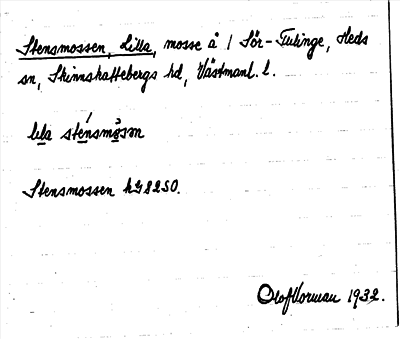 Stensmossen, Lilla, mosse å 1 Sör-Tulinge, Heds
sn, Skinnskattebergs hd, Västmanl. l.
lila sténsmåsən
Stensmossen hG8250.
Olof Norman 1932.